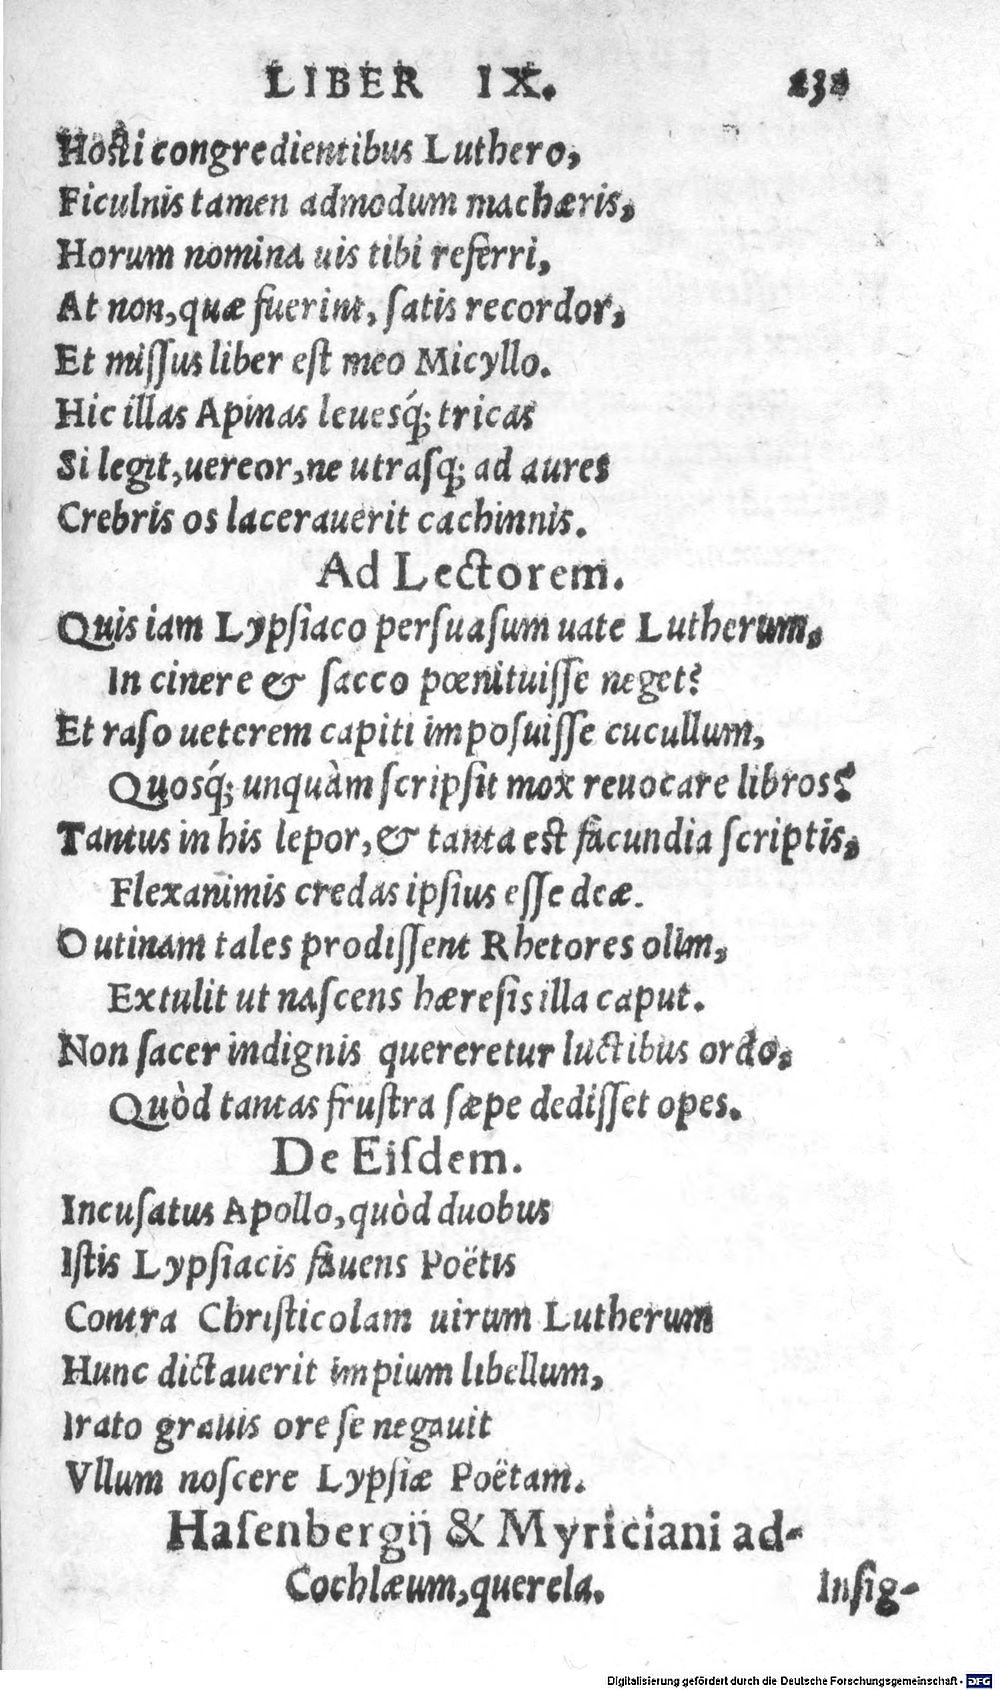 LIBER IX. 231
Hosti congredientibus Luthero,
Ficulnis tamen admodum machæris,
Horum nomina uis tibi referri,
At non, quæ fuerint, ſatis recordor,
Et miſſus liber eſt meo Micyllo.
Hic illas Apinas leuesq́; tricas
Si legit, uereor, ne utraſq; ad aures
Crebris os lacerauerit cachinnis.
Ad Lectorem.
Quis iam Lypſiaco perſuaſum uate Lutherum,
In cinere & ſacco pœnituiſſe neget?
Et raſo ueterem capiti impoſuiſſe cucullum,
Quosq́; unquàm ſcripſit mox reuocare libros?
Tantus in his lepor, & tanta eſt facundia ſcriptis,
Flexanimis credas ipſius eſſe deæ.
O utinam tales prodiſſent Rhetores olim,
Extulit ut naſcens hæreſis illa caput.
Non ſacer indignis quereretur luctibus ordo,
Quòd tantas fruſtra ſæpe dediſſet opes.
De Eiſdem.
Incuſatus Apollo, quòd duobus
Iſtis Lypſiacis fauens Poëtis
Contra Chriſticolam uirum Lutherum
Hunc dictauerit impium libellum,
Irato grauis ore ſe negauit
Vllum noſcere Lypſiæ Poëtam.
Haſenbergij & Myriciani ad-
Cochlæum, querela.
Inſig-
Digitalisierung gefördert durch die Deutsche Forschungsgemeinschaft - DFG